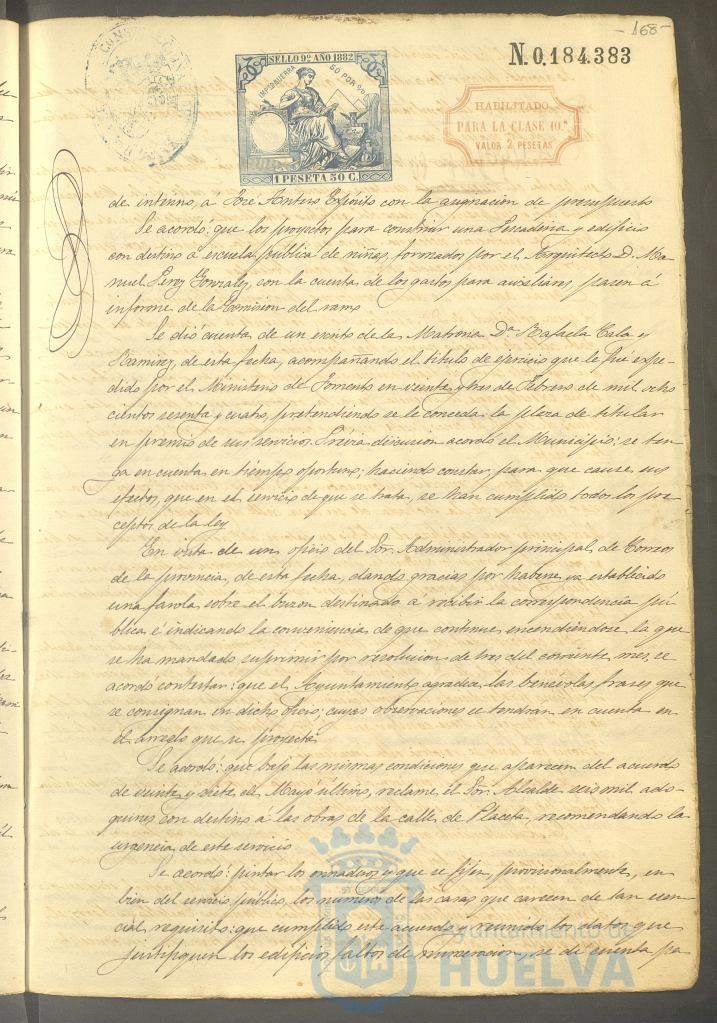 -168-
N. 0.184.383
SELLO 9º AÑO 1882
IMP. DE GUERRA 50 POR %
1 PESETA 50 C.
HABILITADO
PARA LA CLASE 10.ª
VALOR 2 PESETAS
de interino, á José Antero Expósito con la asignacion de presupuesto
Se acordó: que los proyectos para construir una Pescaderia y edificio
con destino á escuela pública de niñas, formados por el Arquitecto D. Ma-
nuel Perez Gonzalez, con la cuenta de los gastos para auxiliares pasen á
informe de la Comision del ramo
Se dió cuenta de un escrito de la Matrona Dª Rafaela Cala y
Ramirez, de esta fecha, acompañando el titulo de ejercicio que le fué expe-
dido por el Ministerio de Fomento en veinte y tres de Febrero de mil ocho
cientos sesenta y cuatro, pretendiendo se le conceda la plaza de titular
en premio de sus servicios. Previa discusion acordó el Municipio: se ten-
ga en cuenta en tiempo oportuno; haciendo constar, para que cause sus
efectos, que en el servicio de que se trata, se han cumplido todos los pre-
ceptos de la ley
En vista de un oficio del Sor. Administrador principal de Correos
de la provincia, de esta fecha, dando gracias por haberse ya establecido
una farola sobre el buzon destinado á recibir la correspondencia pú-
blica é indicando la conveniencia de que continue encendiéndose la que
se ha mandado suprimir por resolucion de tres del corriente mes, se
acordó contestar: que el Ayuntamiento agradece las benévolas frases que
se consignan en dicho oficio; cuyas observaciones se tendran en cuenta en
el arreglo que se proyecta
Se acordó: que bajo las mismas condiciones que aparecen del acuerdo
de veinte y siete de Mayo último, reclame el Sor. Alcalde seis mil ado-
quines con destino á las obras de la calle de Placeta, recomendando la
urgencia de este servicio
Se acordó: pintar los y que se fijen, provisionalmente, en
bien del servicio público, los numeros de las casas que carecen de tan esen-
cial requisito: que cumplido este acuerdo y reunidos los datos que
justifiquen los edificios faltos de numeracion, se dé cuenta pa
Ayuntamiento de
HUELVA